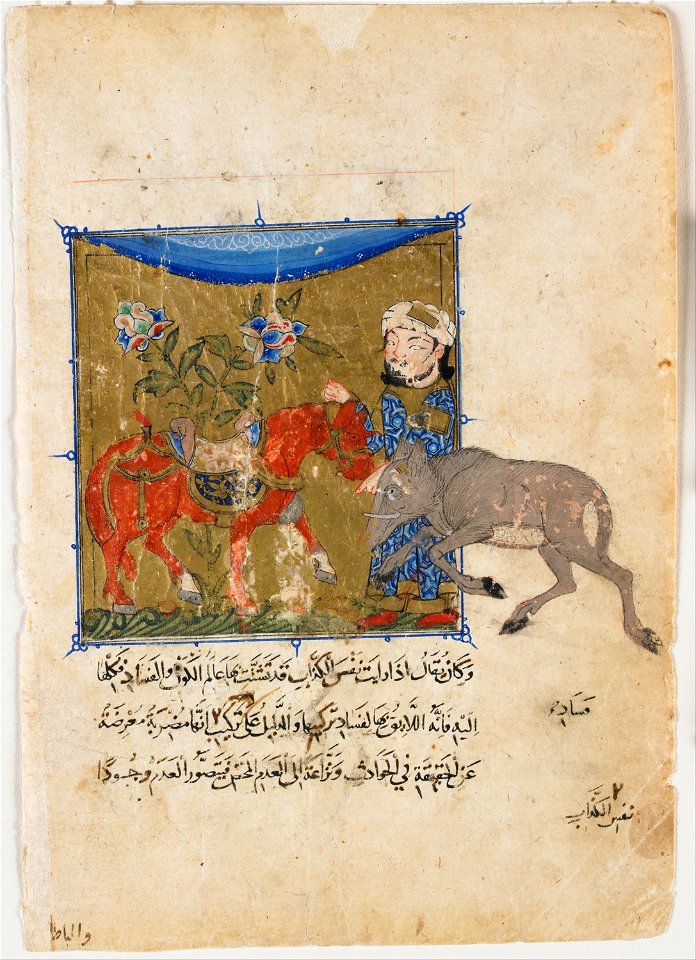 وكان يقال اذا رايت نفس الكذاب قد تشبثت بها عالم الكون والفساد فكلها
اليه فانه اللايق بها لفساد تركيبها والدليل على تركيب انها مضربة معرضة
عن الحقيقة في الحوادث ونزاعة الى العدم المحض فيتصور العدم وجودا
فساد
نفس الكذاب
والباطل